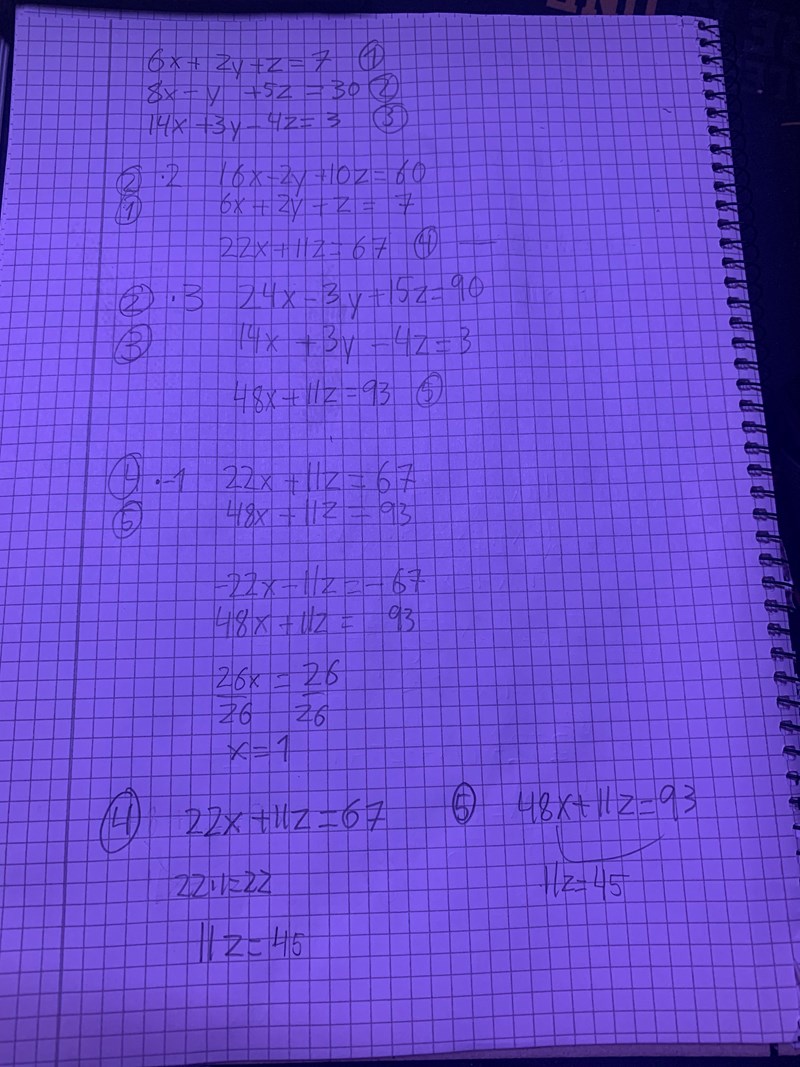 6x + 2y + z = 7 ①
8x - y + 5z = 30 ②
14x + 3y - 4z = 3 ③
② · 2 16x - 2y + 10z = 60
① 6x + 2y + z = 7
22x + 11z = 67 ④
② · 3 24x - 3y + 15z = 90
③ 14x + 3y - 4z = 3
48x + 11z = 93 ⑤
④ · -1 22x + 11z = 67
⑤ 48x + 11z = 93
-22x - 11z = -67
48x + 11z = 93
26x = 26
26 26
x = 1
④ 22x + 11z = 67 ⑤ 48x + 11z = 93
22·1=22 11z = 45
11z = 45